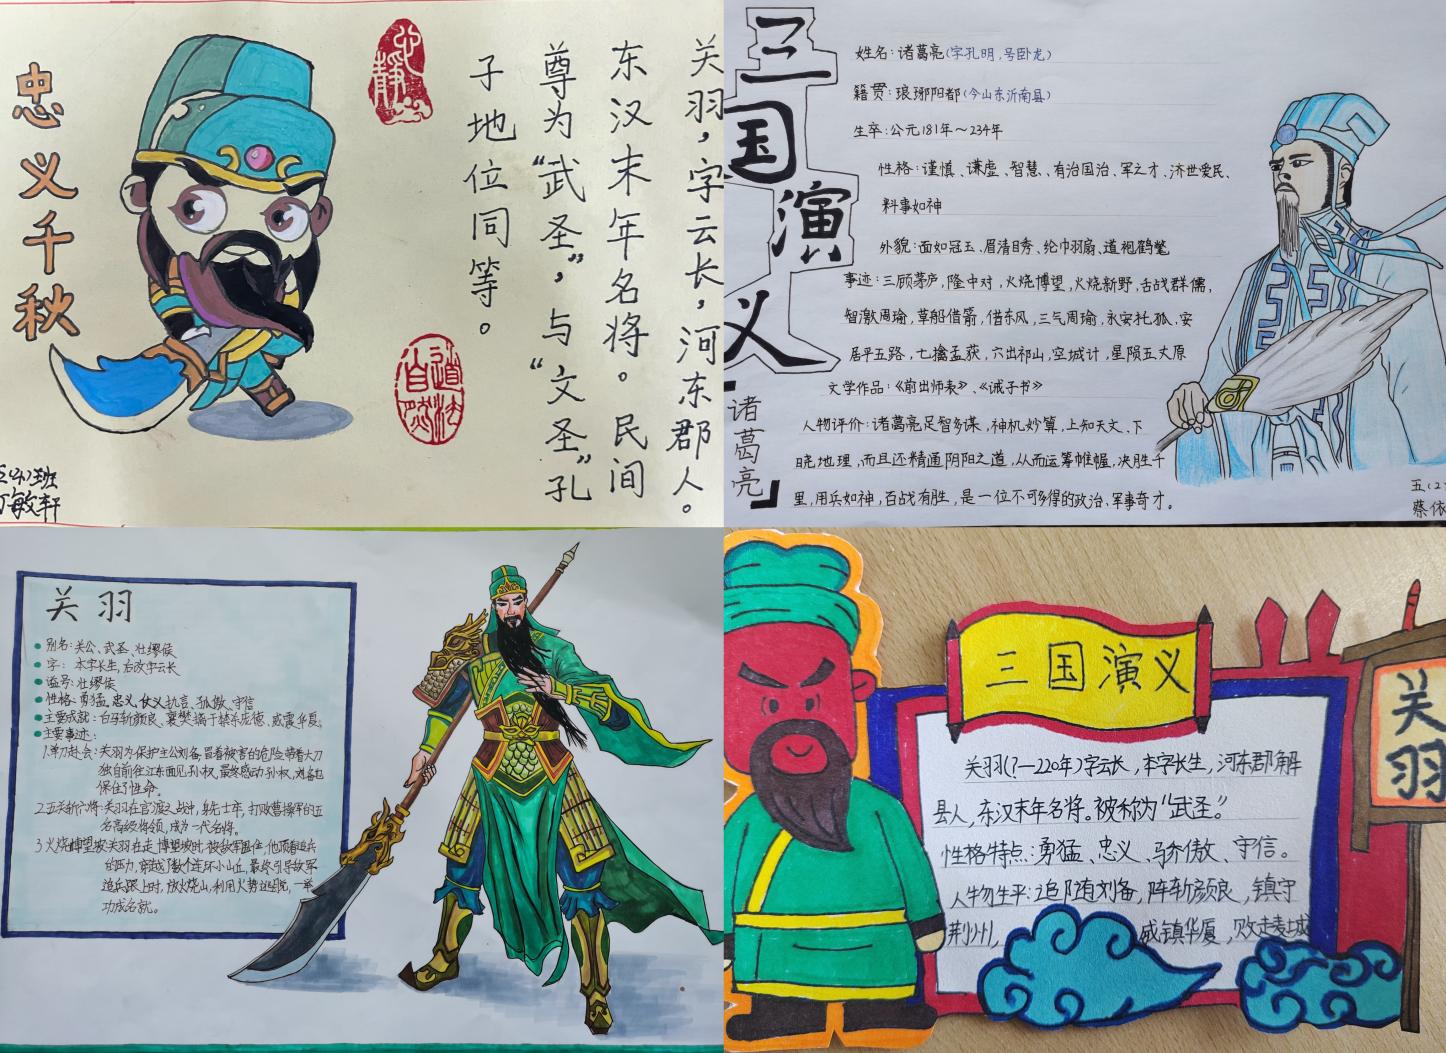 忠义千秋
关羽，字云长，河东郡人。
东汉末年名将。民间
尊为“武圣”，与“文圣”孔
子地位同等。
道法自然
三国演义
诸葛亮
姓名：诸葛亮（字孔明，号卧龙）
籍贯：琅琊阳都（今山东沂南县）
生卒：公元181年～234年
性格：谨慎、谦虚、智慧、有治国治、军之才、济世爱民、
料事如神
外貌：面如冠玉、眉清目秀、纶巾羽扇、道袍鹤氅
事迹：三顾茅庐，隆中对，火烧博望，火烧新野，舌战群儒，
智激周瑜，草船借箭，借东风，三气周瑜，永安托孤、安
居平五路，七擒孟获，六出祁山，空城计，星陨五丈原
文学作品：《前出师表》、《诫子书》
人物评价：诸葛亮足智多谋，神机妙算，上知天文、下
晓地理，而且还精通阴阳之道，从而运筹帷幄，决胜千
里，用兵如神，百战有胜，是一位不可多得的政治、军事奇才。
五（2）
蔡依
关羽
别名：关公、武圣、壮缪侯
字：本字长生，后改字云长
谥号：壮缪侯
性格：勇猛，忠义，孤傲、守信
主要成就：白马斩颜良、襄樊擒于禁斩庞德、威震华夏。
主要事迹：
1.单刀赴会：关羽为保护主公刘备，冒着被害的危险带着大刀
独自前往江东面见孙权，最终感动孙权，刘备也
保住了性命。
2.五关斩六将：关羽在官渡之战中，身先士卒，打败曹操军的五
名高级将领，成为一代名将。
3.火烧博望坡：关羽在走博望坡时，被敌军围住，他顶着追兵
的压力，穿越了数个连环小山丘，最终引导敌军
追兵跟上时，放火烧山，利用火势逃脱，一举
功成名就。
三国演义
关羽
关羽（？—220年）字云长，本字长生，河东郡解
县人，东汉末年名将。被称为“武圣”。
性格特点：勇猛、忠义、骄傲、守信。
人物生平：追随刘备，阵斩颜良，镇守
荆州，威镇华厦，败走麦城